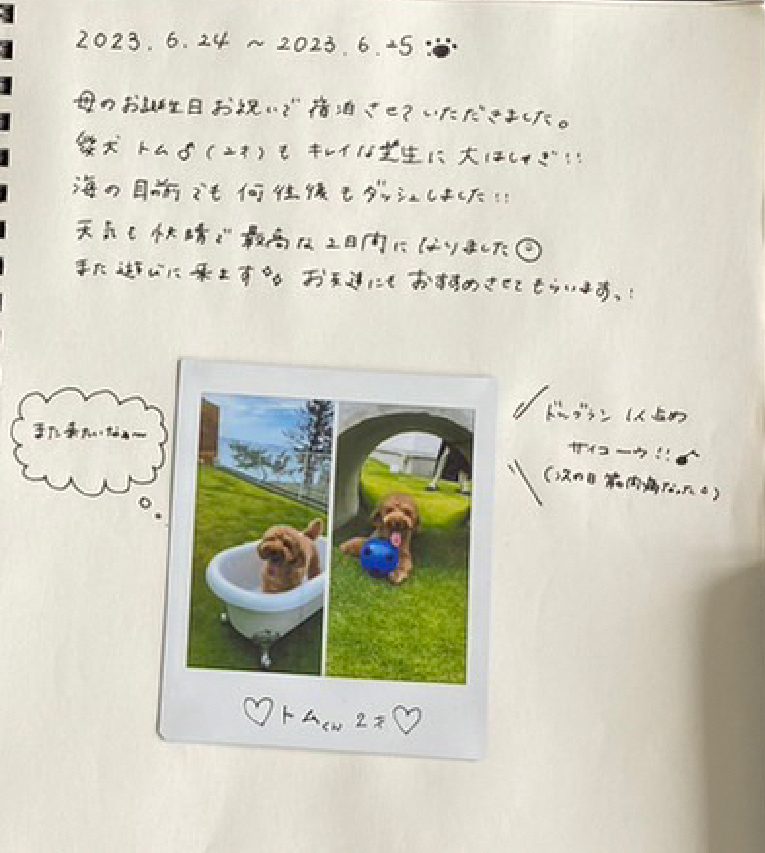 2023.6.24 ~ 2023.6.25
母のお誕生日お祝いで宿泊させていただきました。
愛犬 トム♂(2才)も キレイな芝生に 大はしゃぎ!!
海の目の前でも 何往復もダッシュしました!!
天気も快晴で最高な2日間になりました
また遊びに来ます お友達にもおすすめさせてもらいます!
また来たいなぁ〜
ドッグラン 1人占め
サイコーウ!!
(次の日 筋肉痛だった)
♡トムくん 2才♡